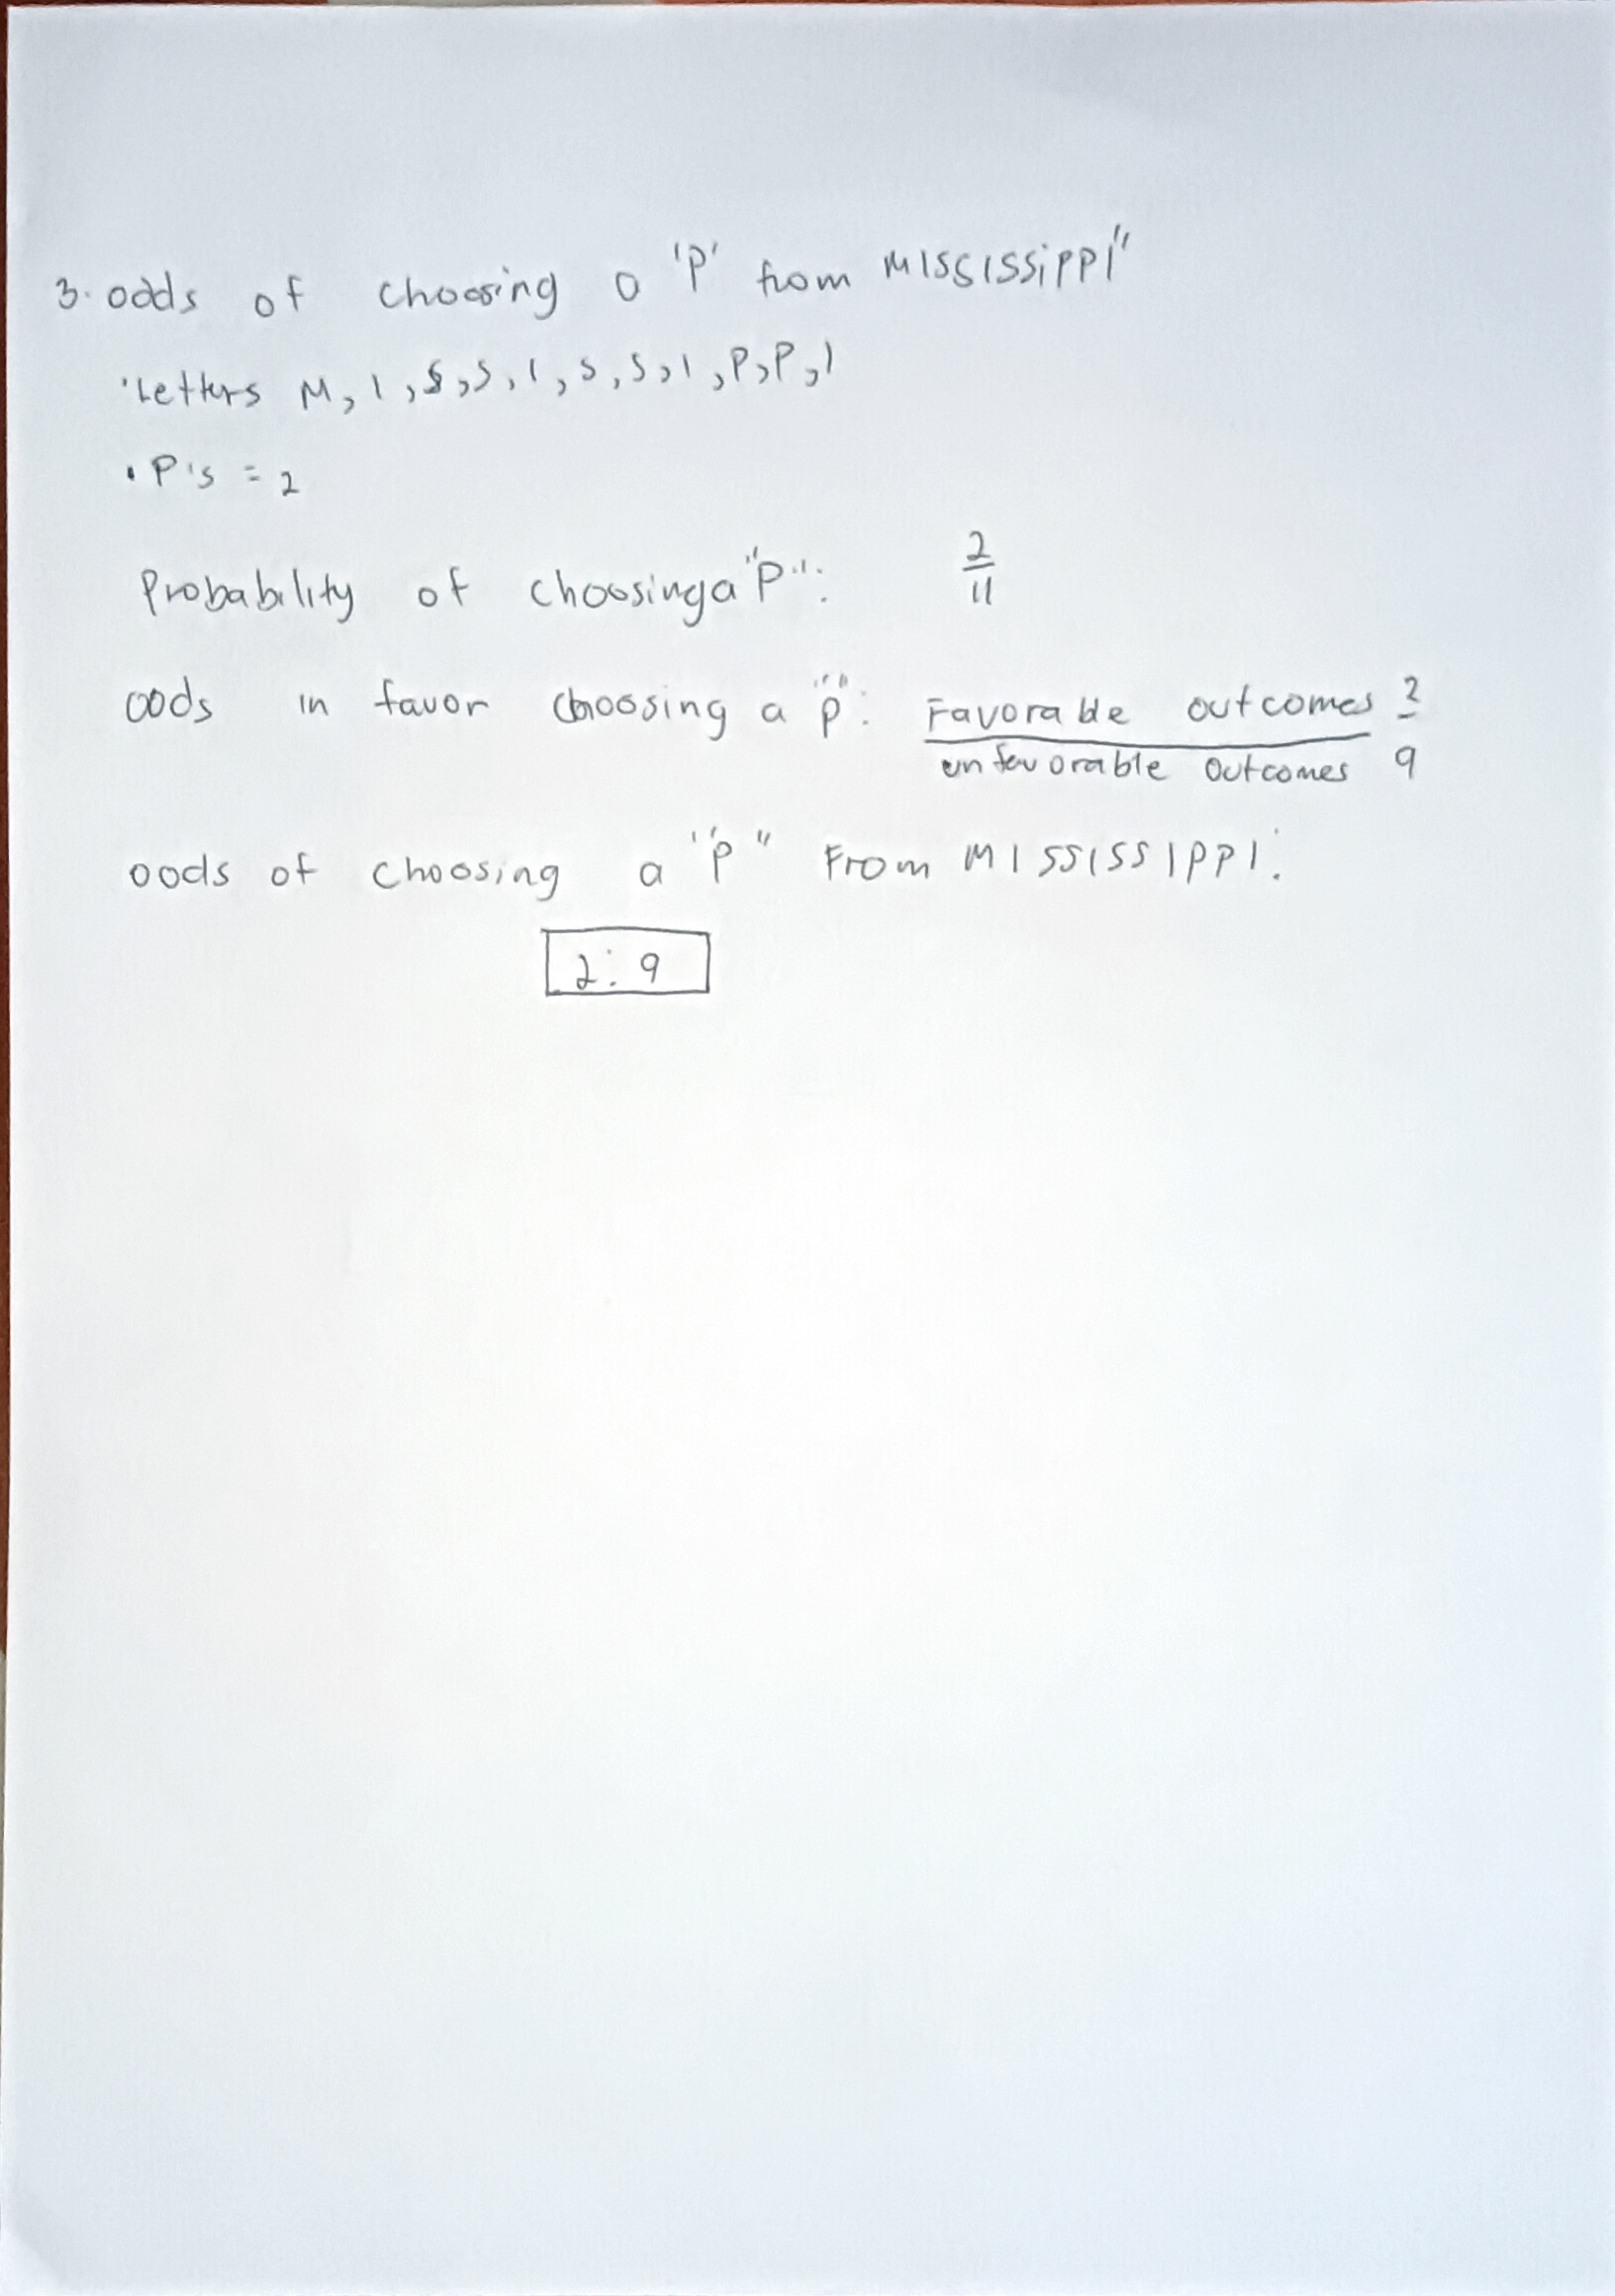 3. odds of choosing a 'P' from MISSISSiPPI"
'Letters M, I, S, S, I, S, S, I, P, P, I
• P's = 2
Probability of choosing a "P": 2/11
oods in favor choosing a "p": Favorable outcomes 2
unfavorable outcomes 9
oods of choosing a "p" From MISSISSIPPI:
2:9